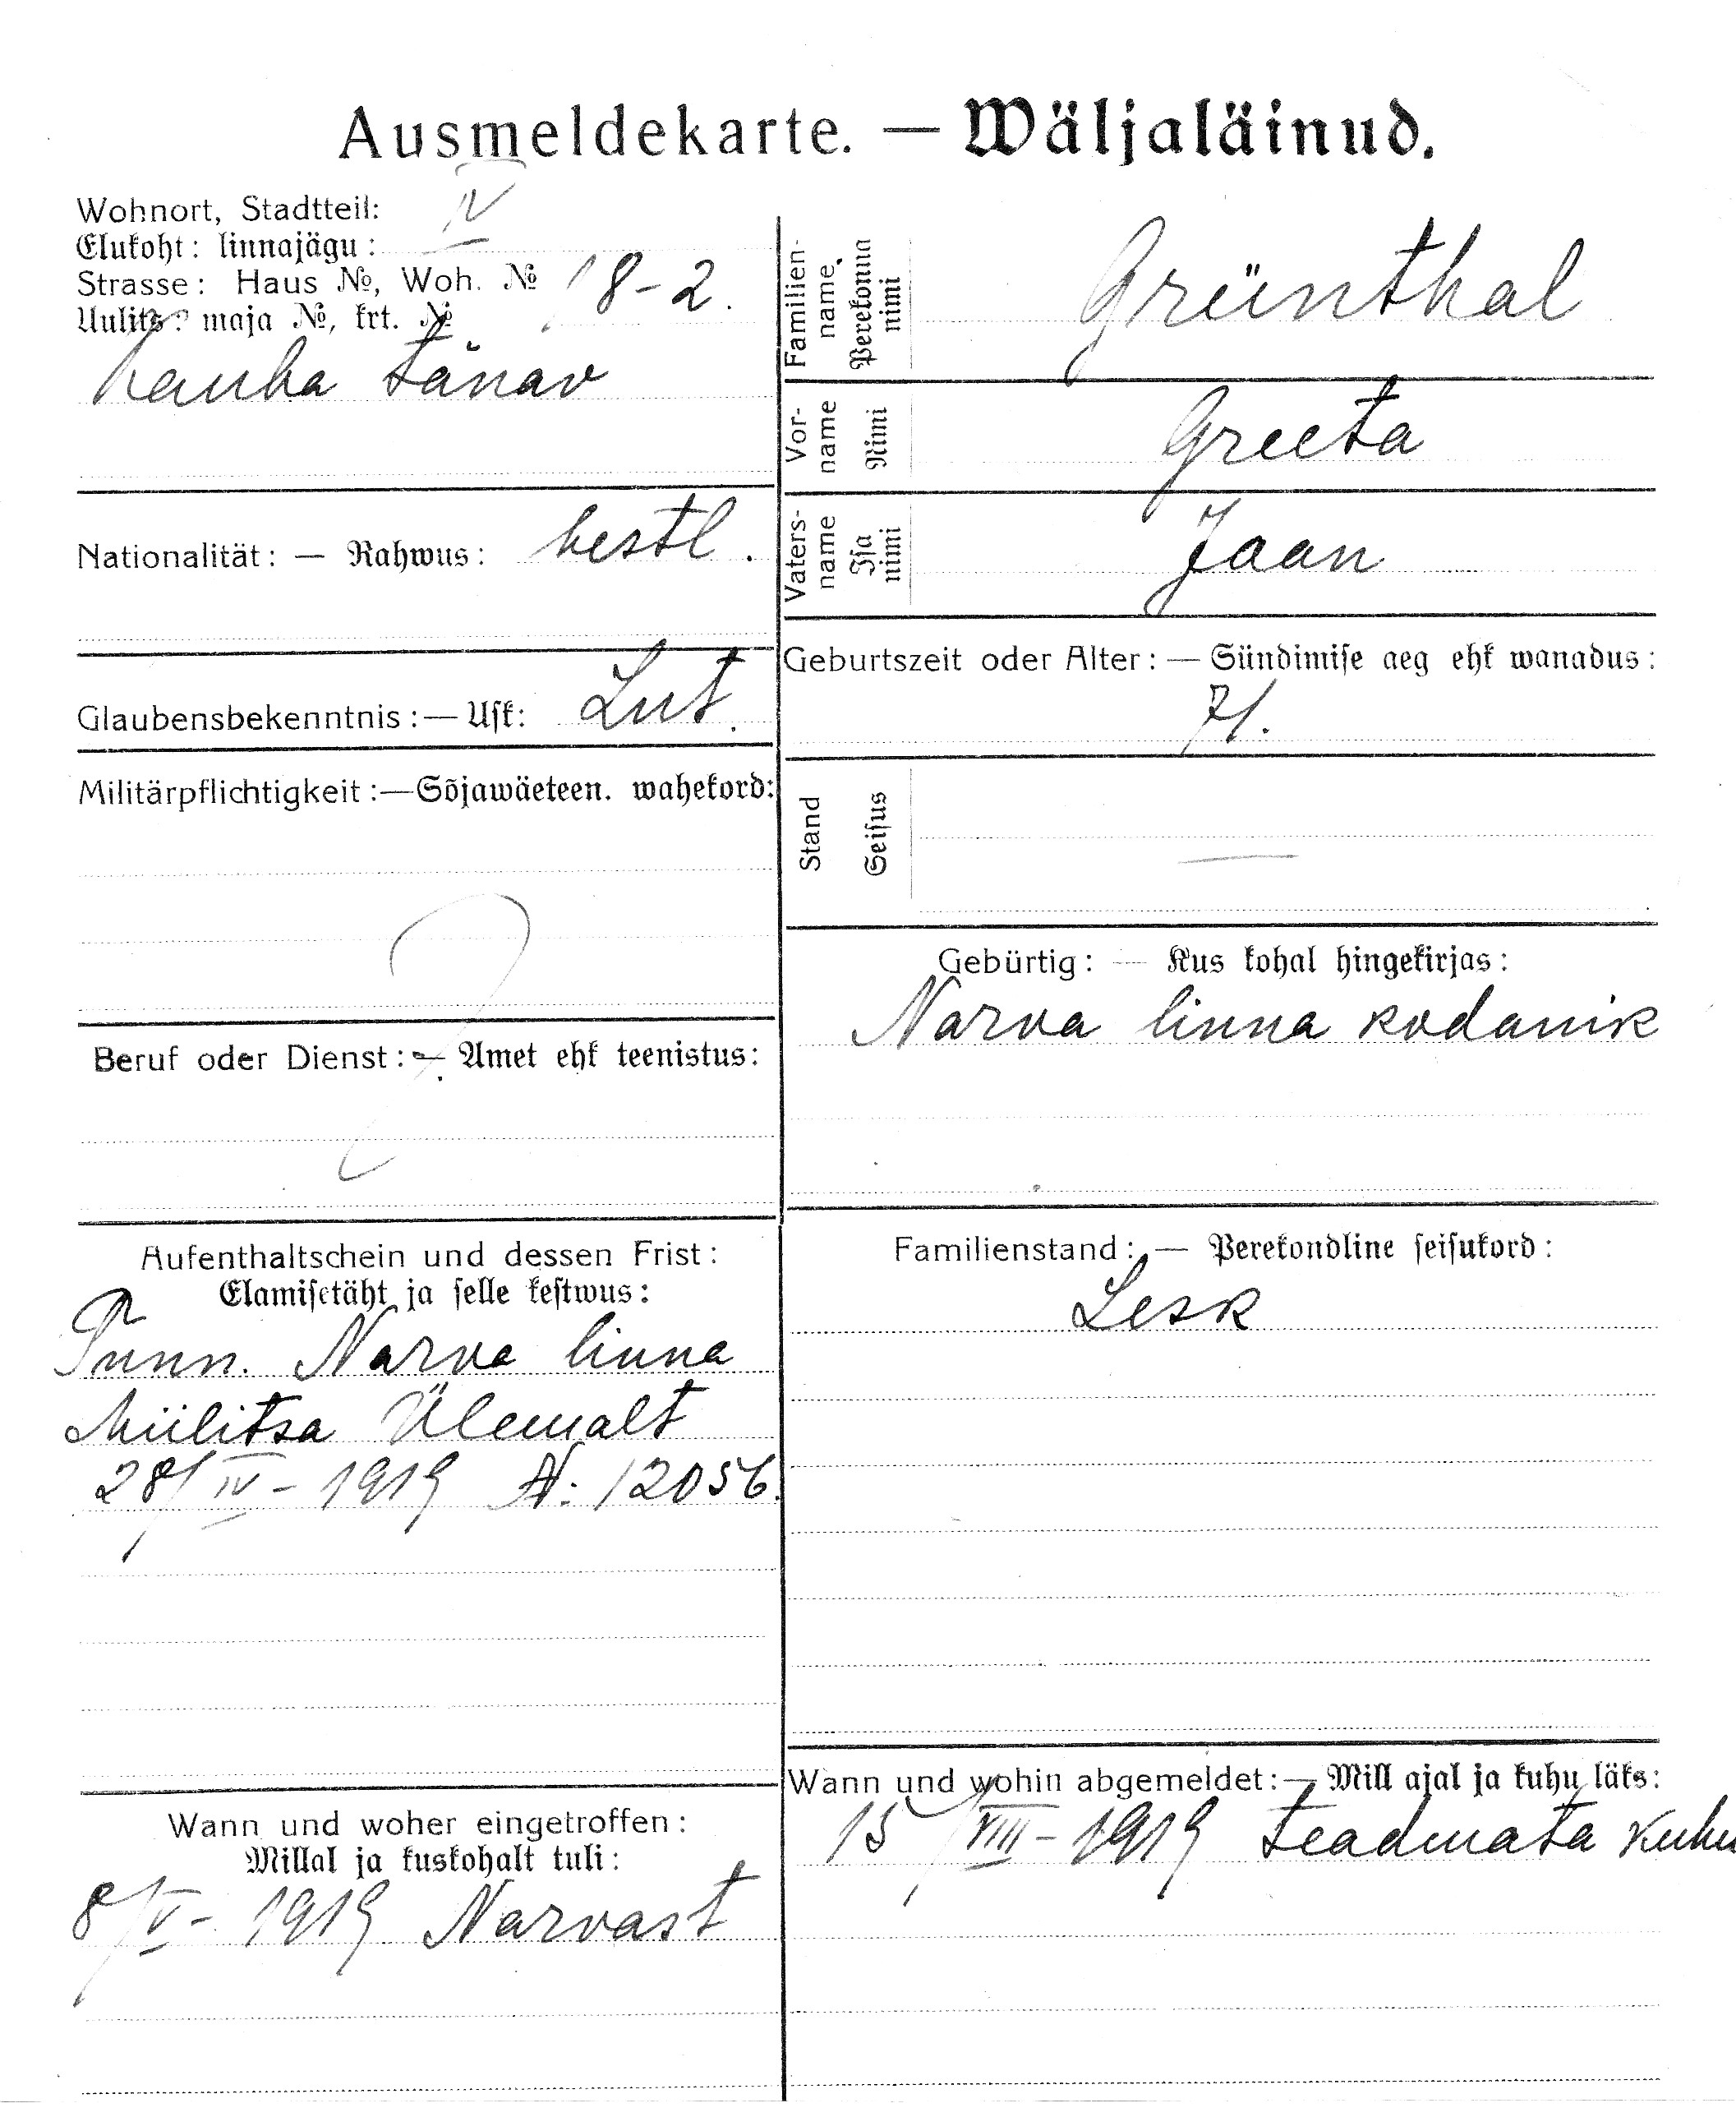 Ausmeldekarte. — Wäljaläinud.
Wohnort, Stadtteil:
Elukoht: linnajägu: IV
Strasse: Haus №, Woh. № 18-2.
Uulits: maja №, krt. №
Kauba tänav
Nationalität: — Rahwus: Eestl.
Glaubensbekenntnis: — Usk: Lut.
Militärpflichtigkeit: — Sõjawäeteen. wahekord:
Beruf oder Dienst: — Amet ehk teenistus:
Aufenthaltschein und dessen Frist:
Elamisetäht ja selle kestwus:
Tunn. Narva linna
Miilitsa Ülemalt
28/IV - 1919 N: 12056.
Wann und woher eingetroffen:
Millal ja kuskohalt tuli:
8/V - 1919 Narvast
Familien-
name,
Perekonna
nimi
Grünthal
Vor-
name
Nimi
Greeta
Vaters-
name
Isa
nimi
Jaan
Geburtszeit oder Alter: — Sündimise aeg ehk wanadus:
71.
Stand
Seisus
—
Gebürtig: — Kus kohal hingekirjas:
Narva linna kodanik
Familienstand: — Perekondline seisukord:
Lesk
Wann und wohin abgemeldet: — Mill ajal ja kuhu läks:
15/VIII - 1919 teadmata kuhu